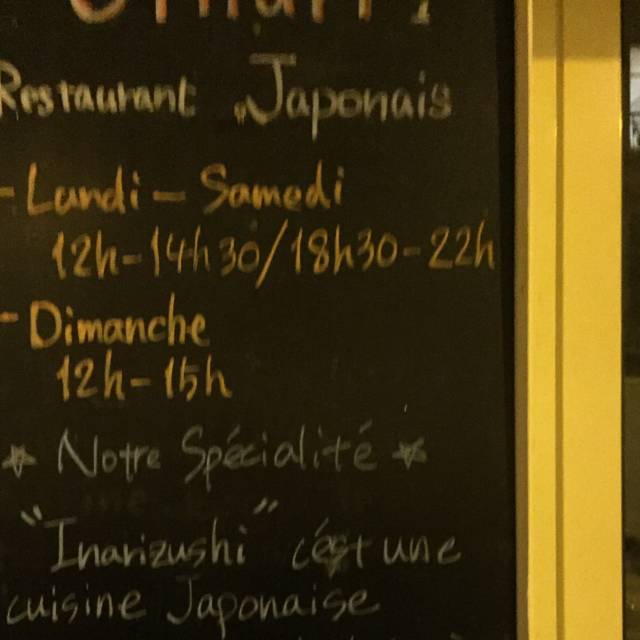 Restaurant Japonais
- Lundi - Samedi
12h-14h30/18h30-22h
- Dimanche
12h-15h
★ Notre Spécialité ★
"Inarizushi" c'est une
cuisine Japonaise